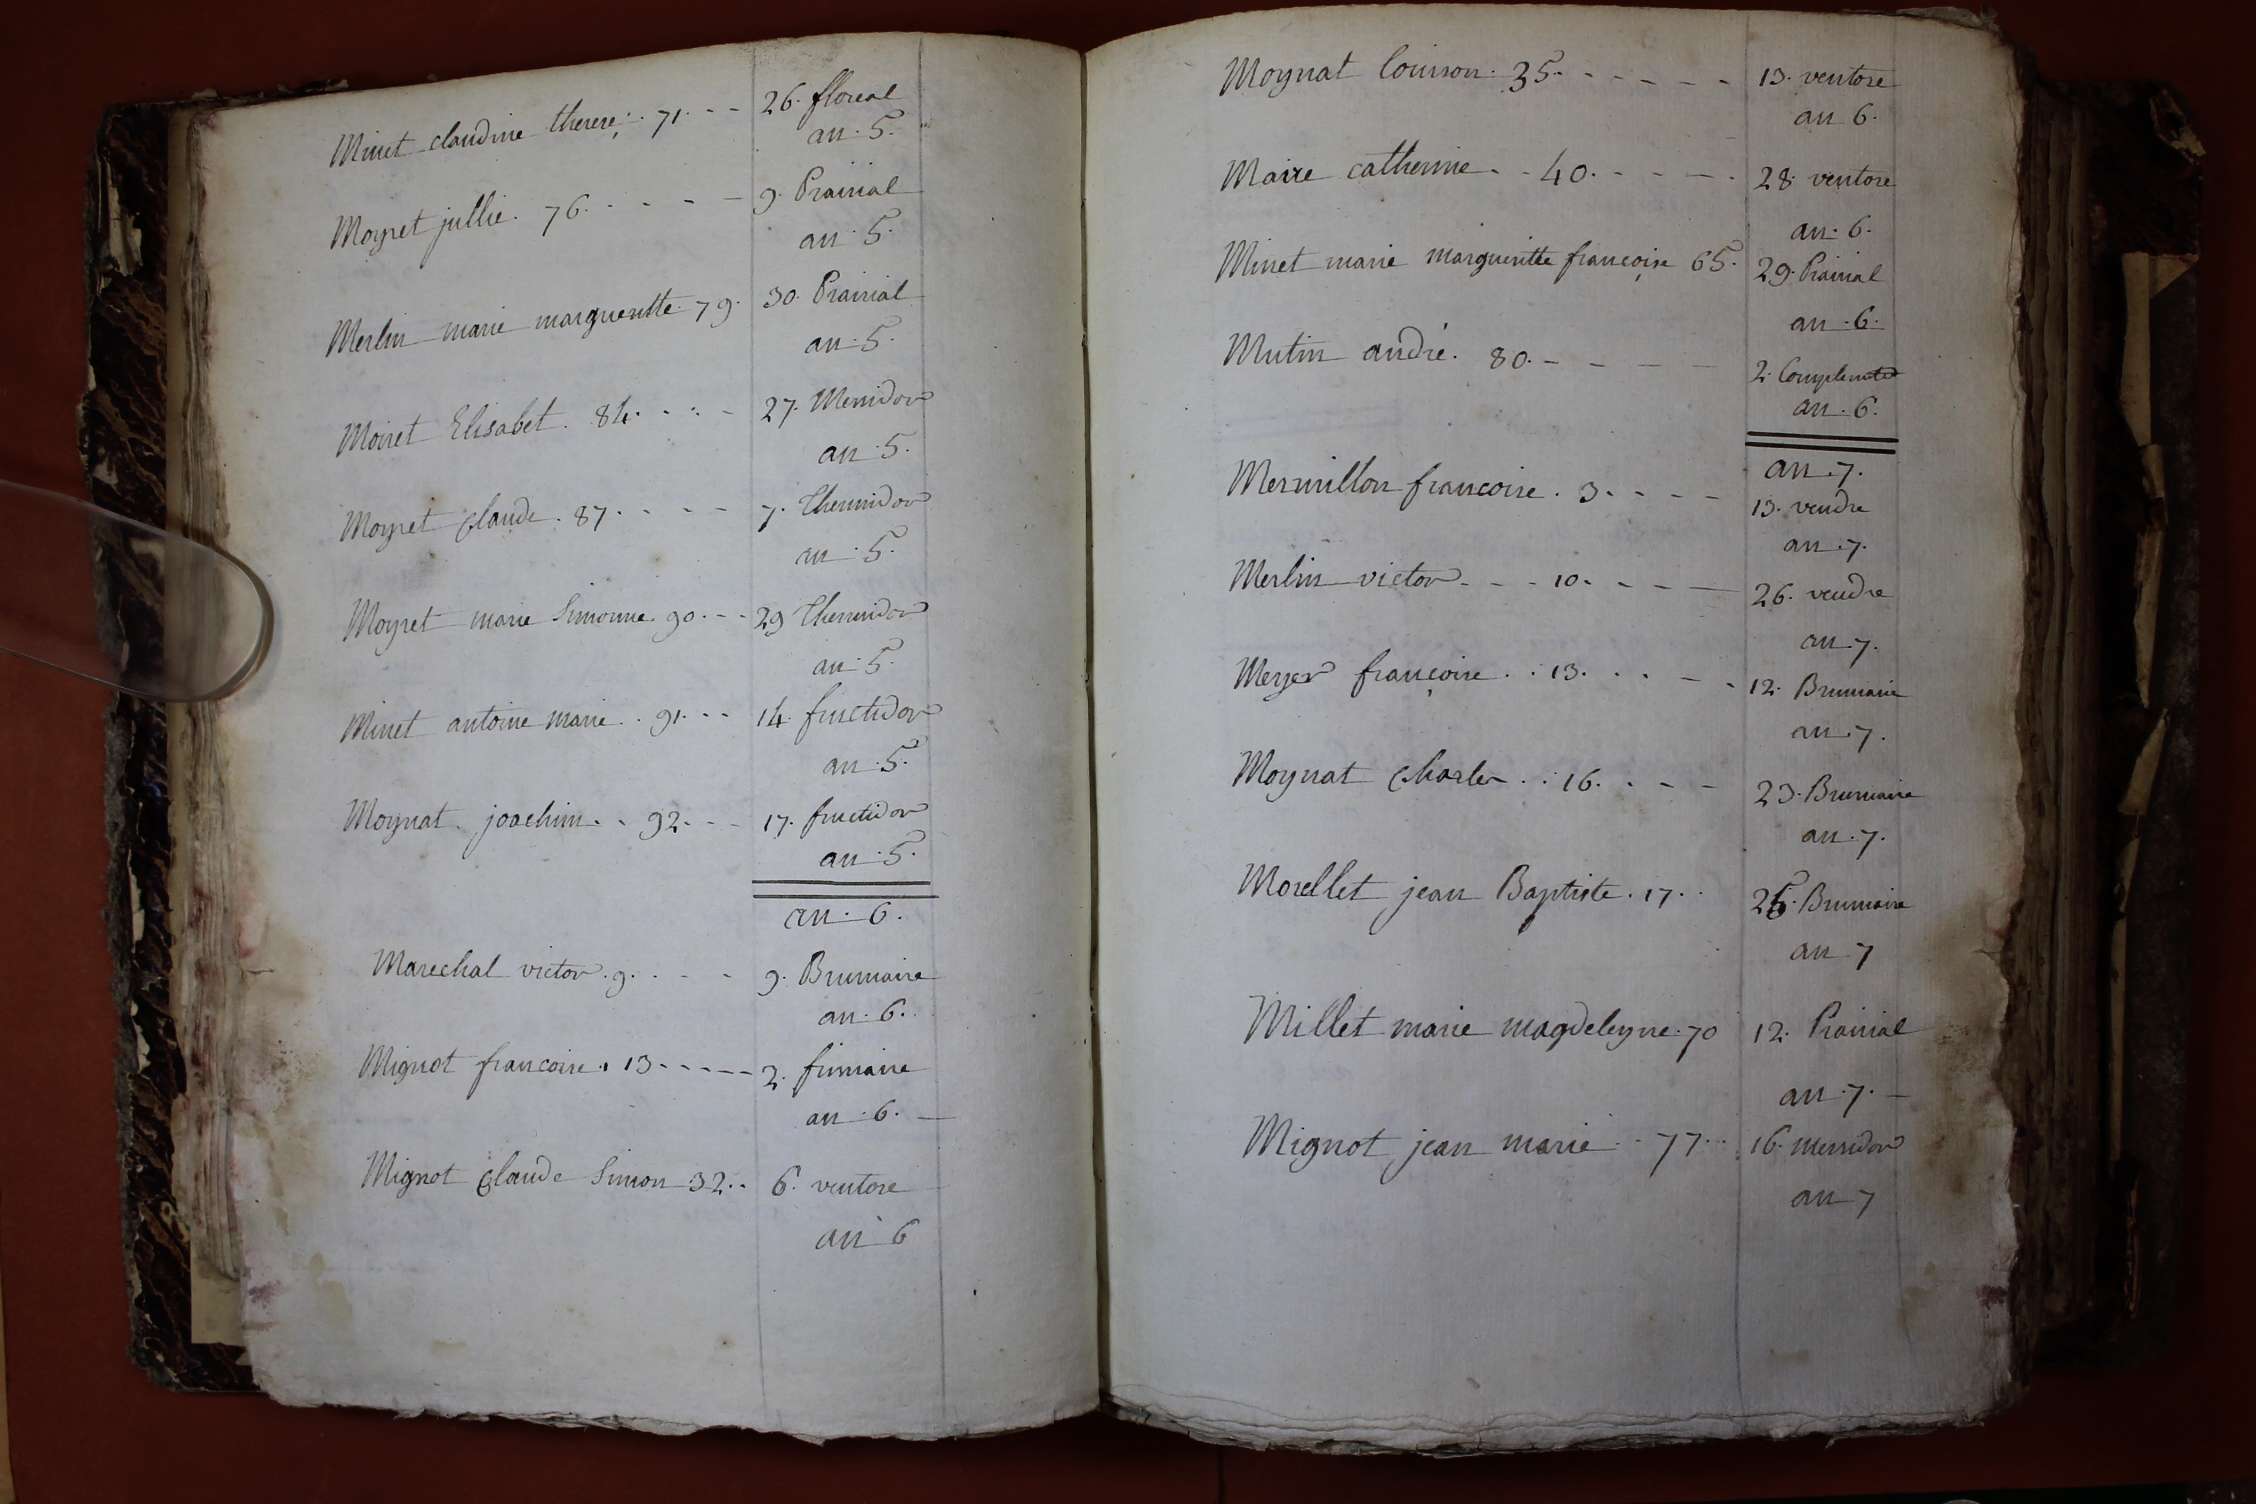 Minet claudine therese. 71. - - 26. floreal
an. 5.
Moyret jullie. 76. - - - - 9. Prairial
an. 5.
Merlin marie margueritte. 79. 30. Prairial
an. 5.
Moiret Elisabet. 84. - - - 27. Messidor
an. 5.
Moyret claude. 87. - - - - 7. Thermidor
an. 5.
Moyret marie Simonne. 90. - - 29 Thermidor
an. 5.
Minet antoine marie. 91. - - 14. fructidor
an. 5.
Moynat joachim. - 92. - - 17. fructidor
an. 5.
an. 6.
Marechal victor. 9. - - - 9. Brumaire
an. 6.
Mignot francoise. 13 - - - - - 2. frimaire
an. 6. -
Mignot claude Simon 32. . 6. ventose
an 6
Moynat louison. 35. - - - - - 13. ventose
an 6.
Maire catherine. - 40. - - - - 28. ventose
an. 6.
Minet marie margueritte françoise 65. 29. Prairial
an. 6.
Mutin andré. 80. - - - - 2. Complemt
an. 6.
an. 7.
Mermillon francoise. 3. - - - - 13. vendre
an. 7.
Merlin victor. - - - 10. - - - - 26. vendre
an. 7.
Meyer françoise. . . 13. . . - - 12. Brumaire
an. 7.
Moynat charles. . . 16. - - - 23. Brumaire
an. 7.
Morellet jean Baptiste. 17. . 25. Brumaire
an 7
Millet marie magdeleyne. 70 12. Prairial
an. 7. -
Mignot jean marie. - 77. . . 16. messidor
an 7